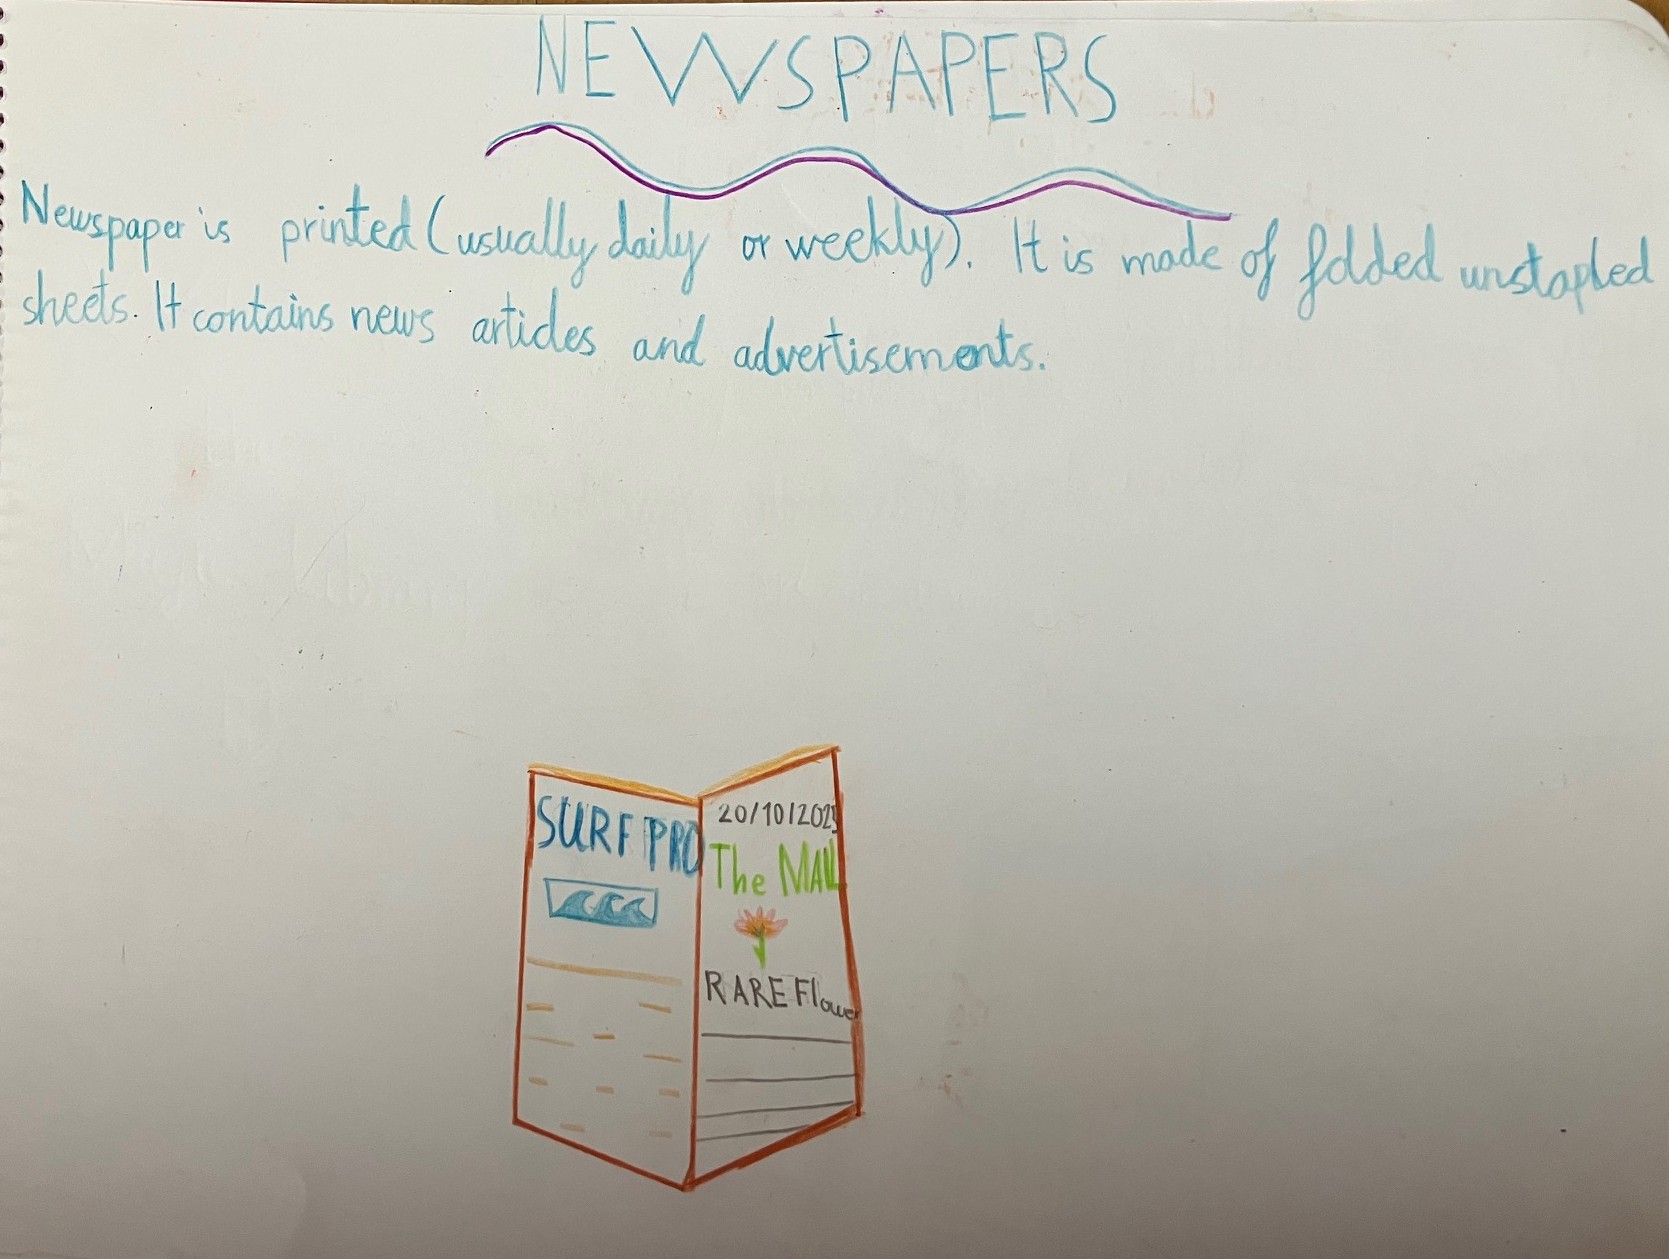 NEWSPAPERS
Newspaper is printed (usually daily or weekly). It is made of folded unstapled
sheets. It contains news articles and advertisements.
SURF PRO
20/10/2025
The MAIL
RARE Flower